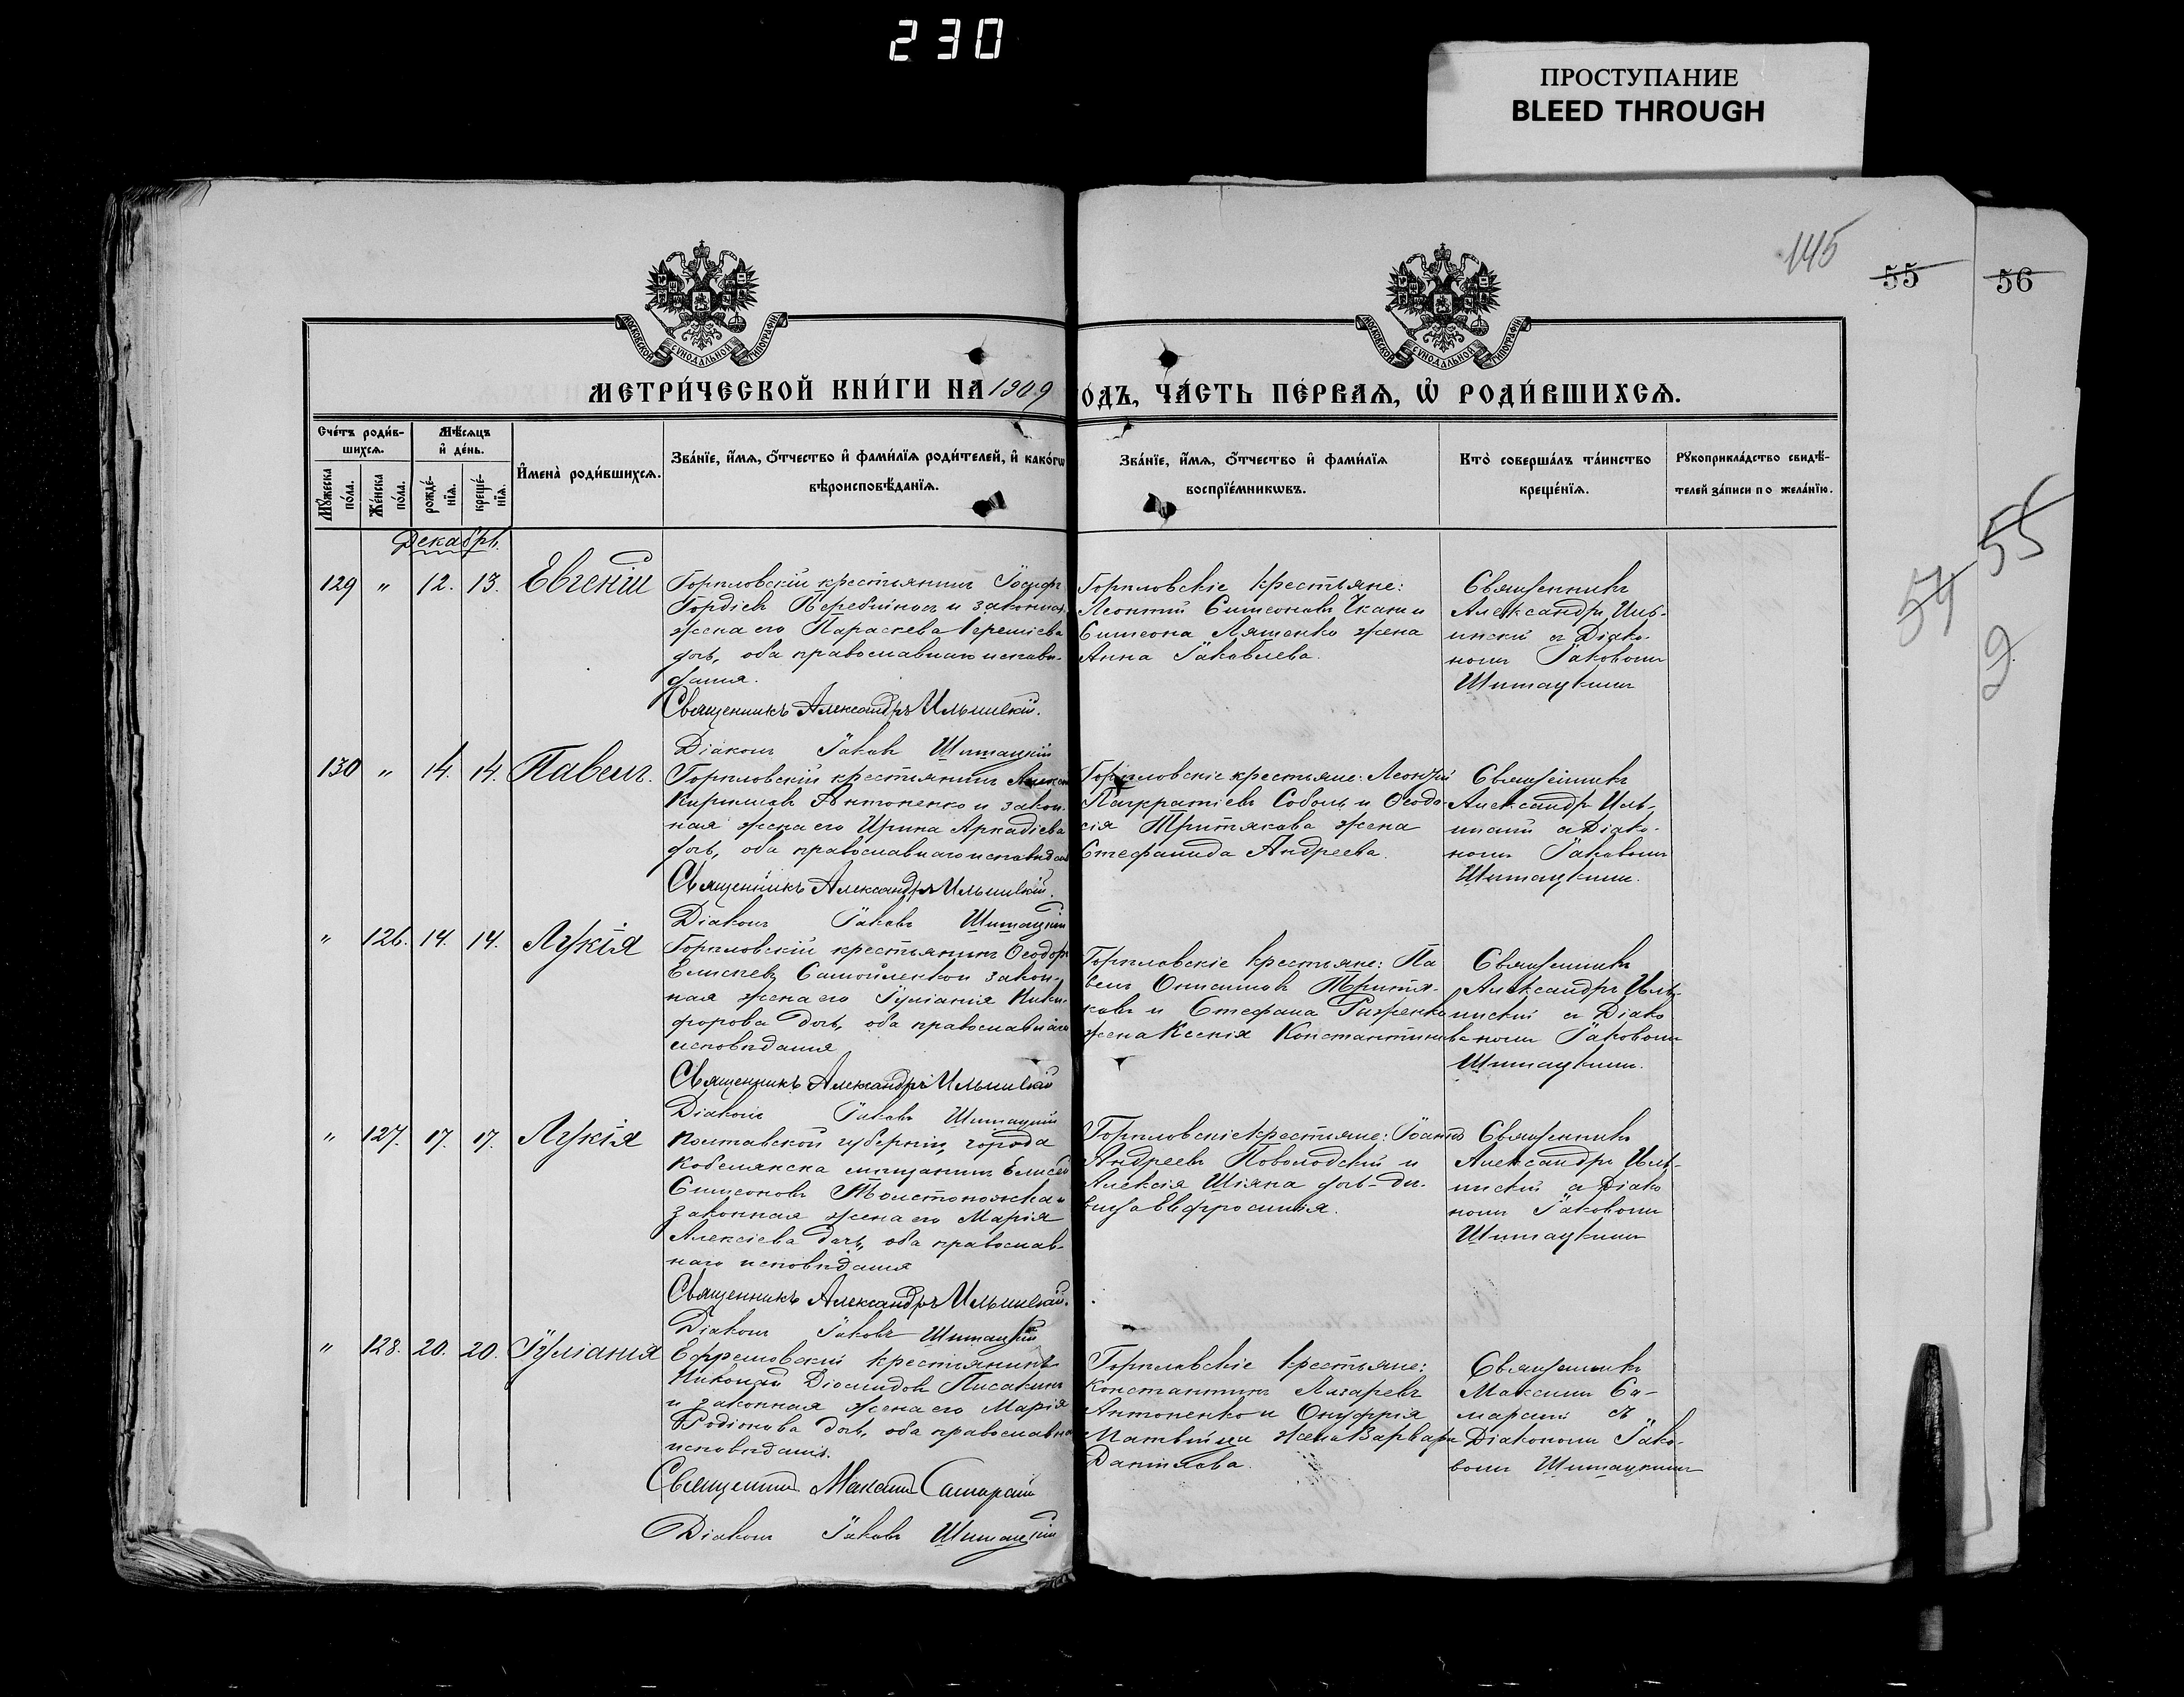 230
ПРОСТУПАНИЕ
BLEED THROUGH
145
55
56
МОСКОВСКОЙ СѴНОДАЛЬНОЙ ТИПОГРАФІИ
МОСКОВСКОЙ СѴНОДАЛЬНОЙ ТИПОГРАФІИ
МЕТРИ́ЧЕСКОЙ КНИ́ГИ НА 1909
ОДЪ, ЧА́СТЬ ПЕ́РВАѦ, Ѡ РОДИ́ВШИХСѦ.
Сче́тъ роди́в-
шихсѧ.
Мѣ́сѧцъ
и҆ де́нь.
Мꙋ́жеска по́ла.
Же́нска по́ла.
рожде́-нїѧ.
креще́-нїѧ.
И҆мена̀ роди́вшихсѧ.
Зва́нїе, и҆́мѧ, о҆́тчество и҆ фами́лїѧ роди́телей, и҆ како́гѡ
вѣроисповѣ́данїѧ.
Зва́нїе, и҆́мѧ, о҆́тчество и҆ фами́лїѧ
воспрїе́мникѡвъ.
Кто̀ соверша́лъ та́инство
креще́нїѧ.
Рꙋкоприкла́дство свидѣ́-
телей за́писи по жела́нїю.
Декабрь
129 " 12. 13. Евгеній
Горпловскій крестьянинъ Іосифъ
Гордіевъ и законная
жена его Параскева
дочь, оба православнаго исповѣ-
данія.
Священникъ Александръ Ильинскій.
Діаконъ Іаковъ Шитацкій
Горпловскіе крестьяне:
Леонтій Симеоновъ Ткач и
Симеона Ляшенко жена
Анна Іаковлева.
Священникъ
Александръ Иль-
инскій съ Діако-
номъ Іаковомъ
Шитацкимъ
130 " 14. 14. Павелъ.
Горпловскій крестьянинъ
Кириловъ Антоненко и закон-
ная жена его Ирина Аркадіева
дочь, оба православнаго исповѣдан
Священникъ Александръ Ильинскій.
Діаконъ Іаковъ Шитацкій
Горпловскіе крестьяне:
Панкратіевъ Соболь и Ѳеодо-
сія Притякова жена
Стефанида Андреева.
Священникъ
Александръ Иль-
инскій съ Діако-
номъ Іаковомъ
Шитацкимъ.
" 126. 14. 14. Лукія
Горпловскій крестьянинъ Ѳеодоръ
Елисеевъ Самойленко и закон-
ная жена его Іуліанія Ники-
форова дочь, оба православнаго
исповѣданія
Священникъ Александръ Ильинскій
Діаконъ Іаковъ Шитацкій
Горпловскіе крестьяне: Па
велъ Онисимовъ Притя-
ковъ и Стефана Рыженко
жена Ксенія Константинова
Священникъ
Александръ Иль-
инскій съ Діако
номъ Іаковомъ
Шитацкимъ.
" 127. 17. 17. Лукія
Полтавской губерніи, города
Кобелякска мѣщанинъ Елисей
Симеоновъ Толстоножка и
законная жена его Марія
Алексіева дочь, оба православ-
наго исповѣданія
Священникъ Александръ Ильинскій.
Діаконъ Іаковъ Шитацкій
Горпловскіе крестьяне: Іоаннъ
Андреевъ Поволодскій и
Алексія Шіяна дочь-дѣ-
вица Евфросинія.
Священникъ
Александръ Иль-
инскій съ Діако
номъ Іаковомъ
Шитацкимъ
" 128. 20. 20. Іуліанія
Ефремовскій крестьянинъ
Николай Діомидовъ Писакинъ
и законная жена его Марія
Родіонова дочь, оба православна
исповѣданія.
Священникъ Максимъ Самарскій
Діаконъ Іаковъ Шитацкій
Горпловскіе крестьяне:
Константинъ Лазаревъ
Антоненко и Онуфрія
жена Варвара
Даніилова.
Священникъ
Максимъ Са-
марскій съ
Діакономъ Іако-
вомъ Шитацкимъ
55
54
2